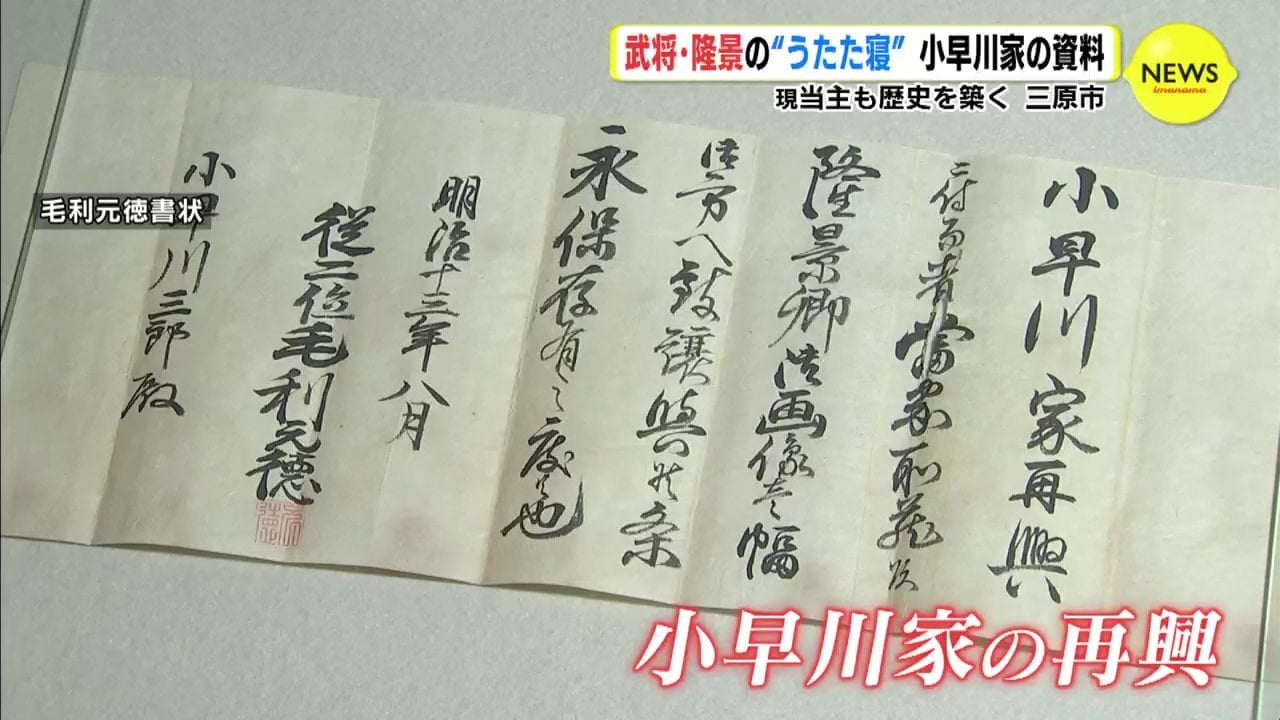 武将・隆景の“うたた寝” 小早川家の資料
現当主も歴史を築く 三原市
NEWS
imanama
毛利元徳書状
小早川家再興
ニ付而者當家所蔵
隆景卿御画像壱幅
御方へ致譲與候条
永保存有之度候也
明治十三年八月
従二位毛利元徳
小早川三郎殿
小早川家の再興